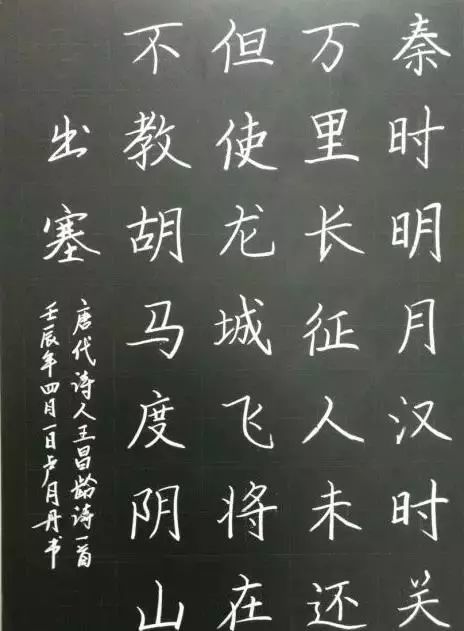 秦时明月汉时关
万里长征人未还
但使龙城飞将在
不教胡马度阴山
出塞
唐代诗人王昌龄诗一首
壬辰年四月一日卢月丹书